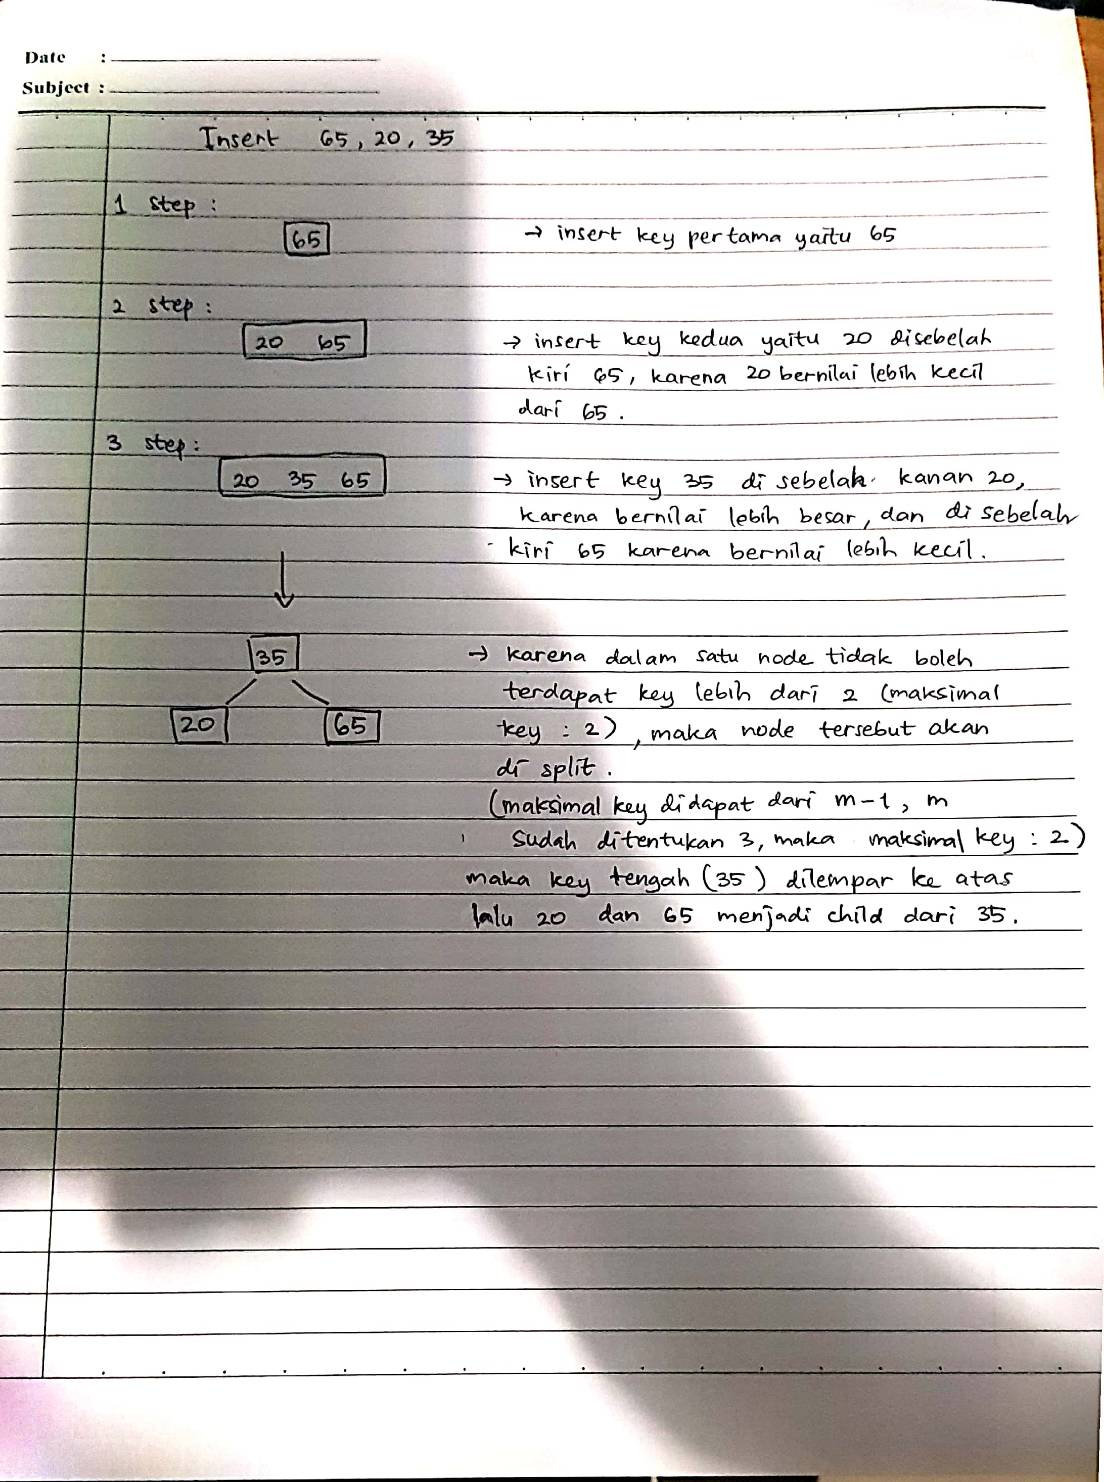 Date :
Subject :
Insert 65, 20, 35
1 step :
65 → insert key pertama yaitu 65
2 step :
20 65 → insert key kedua yaitu 20 disebelah
kiri 65, karena 20 bernilai lebih kecil
dari 65.
3 step :
20 35 65 → insert key 35 di sebelah kanan 20,
karena bernilai lebih besar, dan di sebelah
kiri 65 karena bernilai lebih kecil.
35 → karena dalam satu node tidak boleh
terdapat key lebih dari 2 (maksimal
20 65 key : 2), maka node tersebut akan
di split.
(maksimal key didapat dari m-1, m
sudah ditentukan 3, maka maksimal key : 2)
maka key tengah (35) dilempar ke atas
lalu 20 dan 65 menjadi child dari 35.